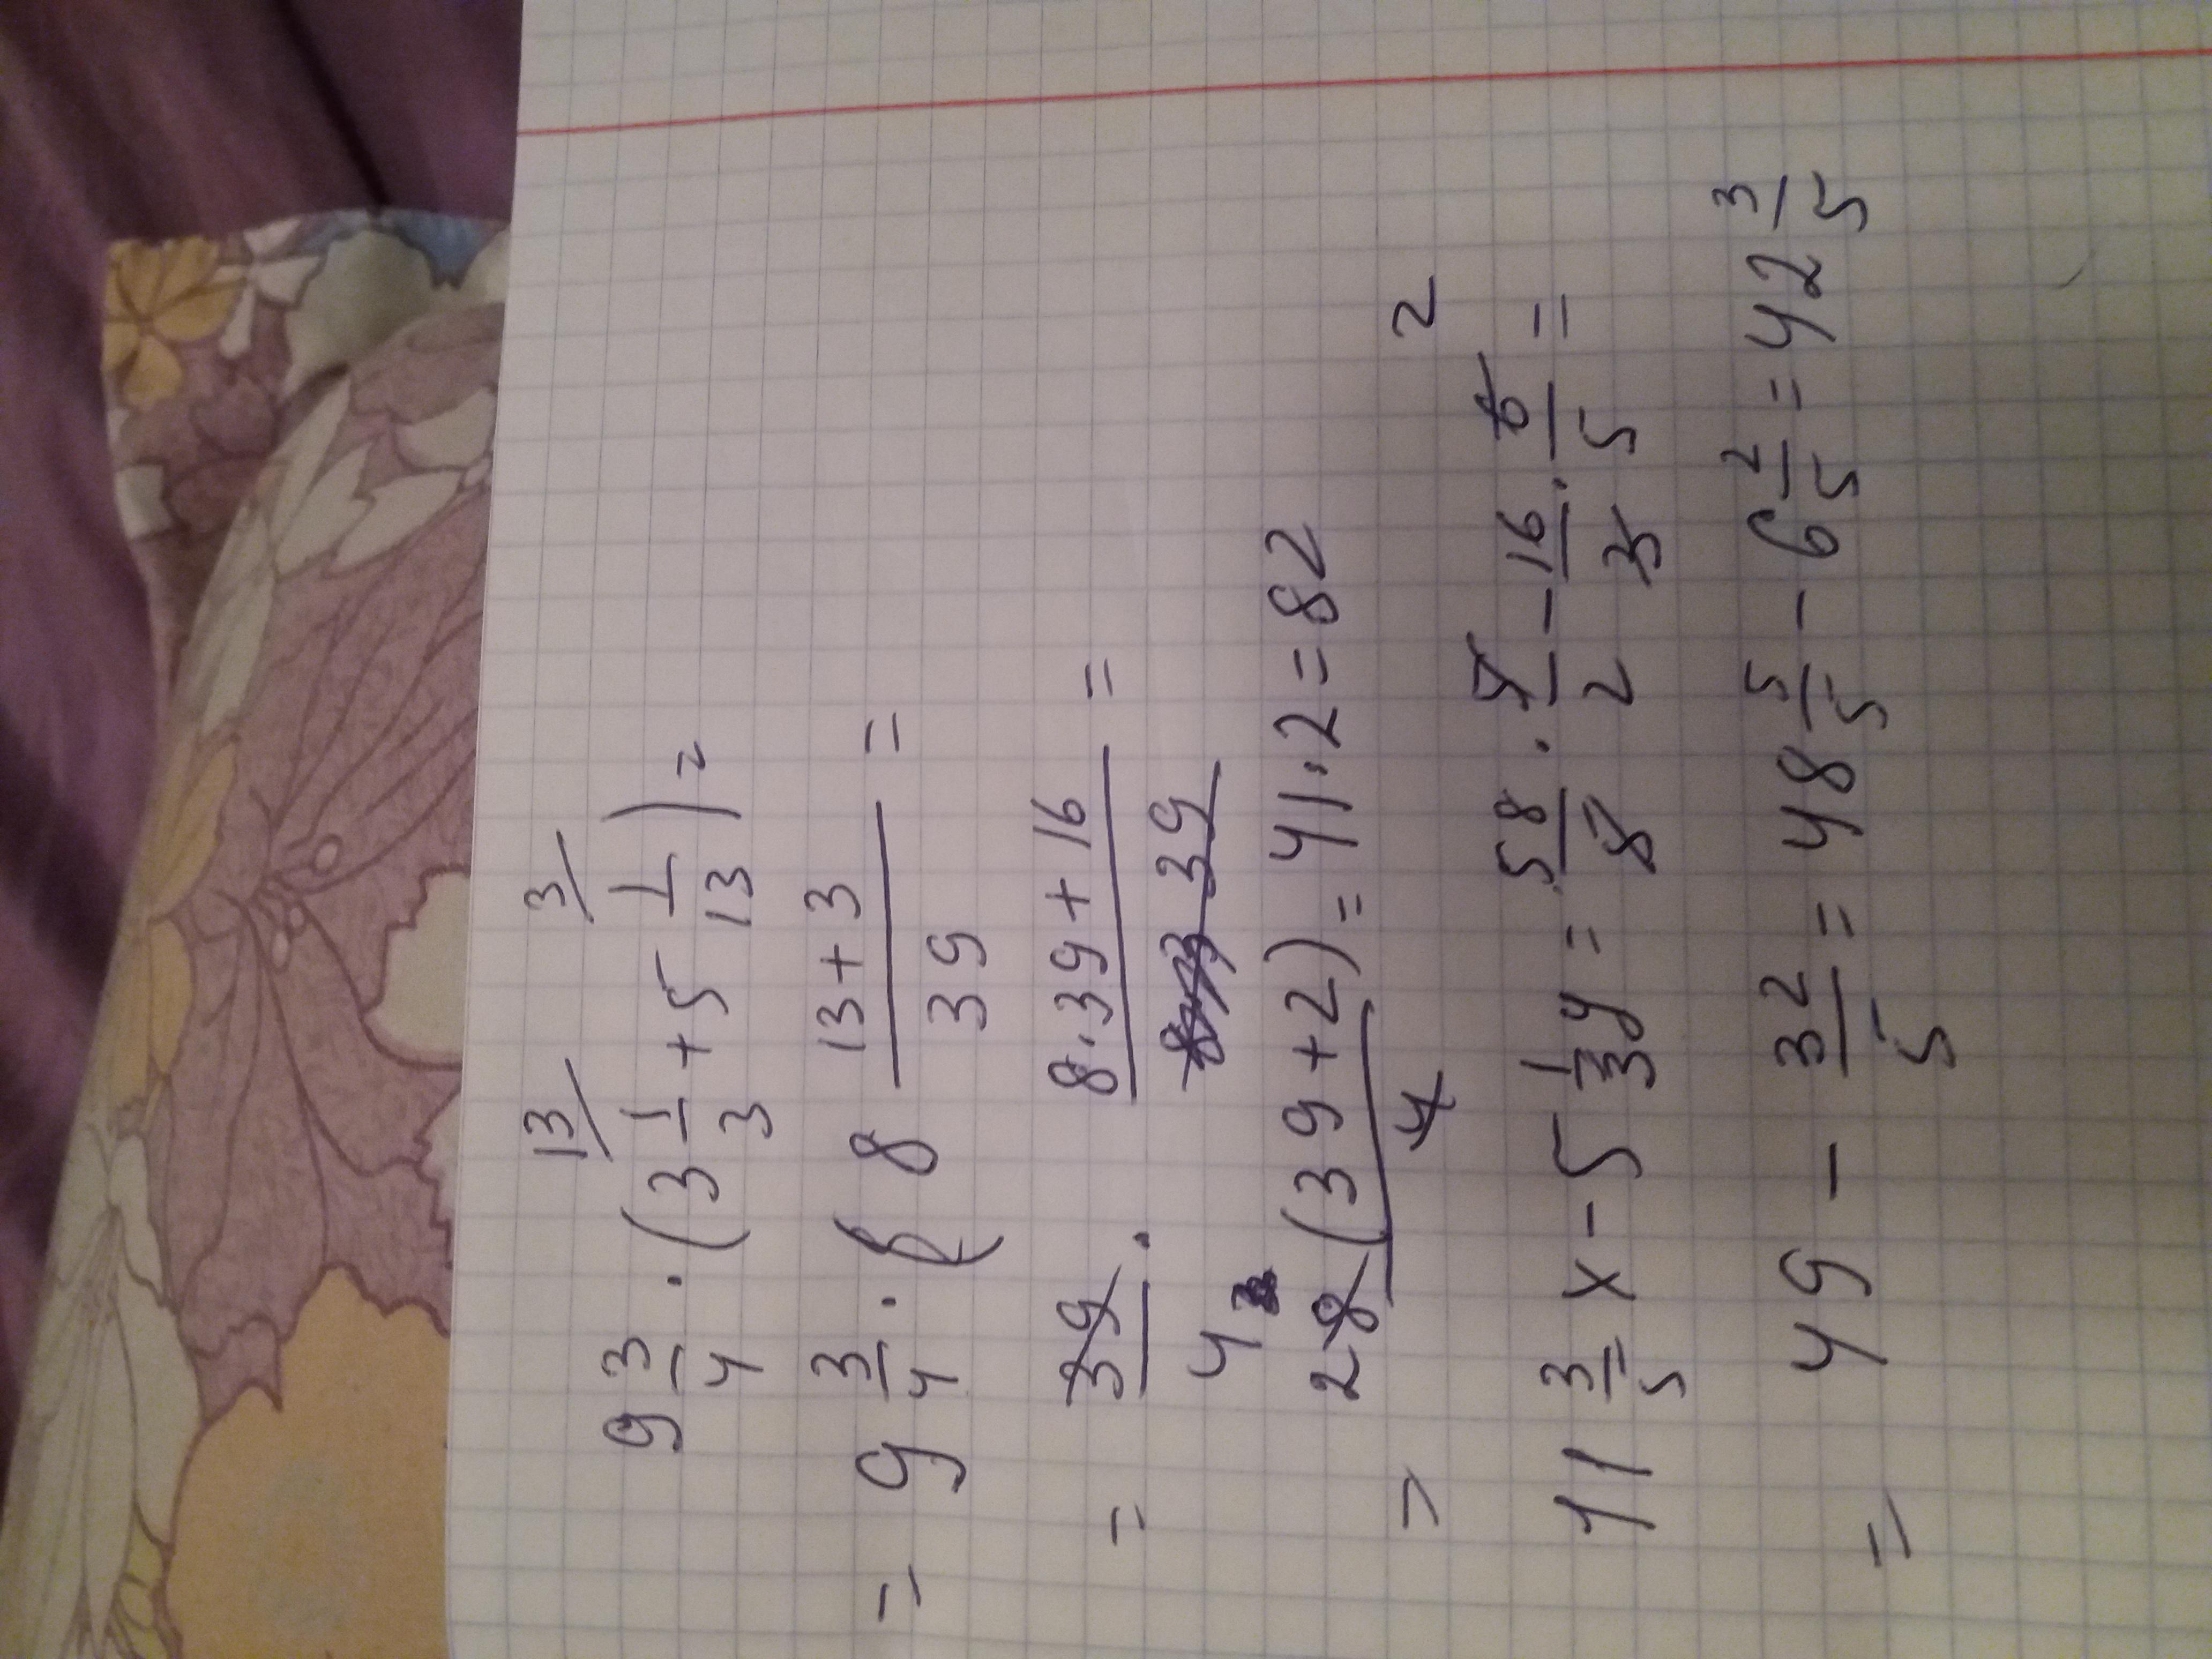 13/ 3/
9 3/4 · (3 1/3 + 5 1/13) =
= 9 3/4 · (8 13+3/39 =
= 39/4 · 8·39+16/39 =
= 28(39+2)/4 = 41·2 = 82
2
11 3/5 x - 5 1/3 y = 58/8 · /2 - 16/3 · 6/5 =
= 49 - 32/5 = 48 5/5 - 6 2/5 = 42 3/5